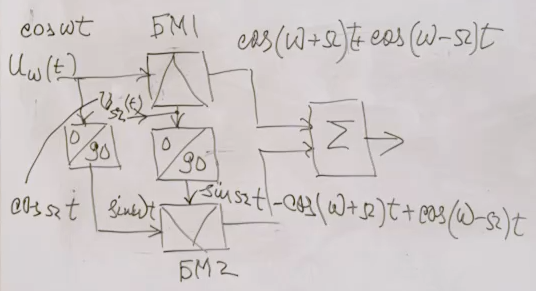 cos ωt
БМ1
cos(ω+Ω)t + cos(ω-Ω)t
Uω(t)
UΩ(t)
0/90
0/90
Σ
cos Ωt
sin ωt
sin Ωt
-cos(ω+Ω)t + cos(ω-Ω)t
БМ2